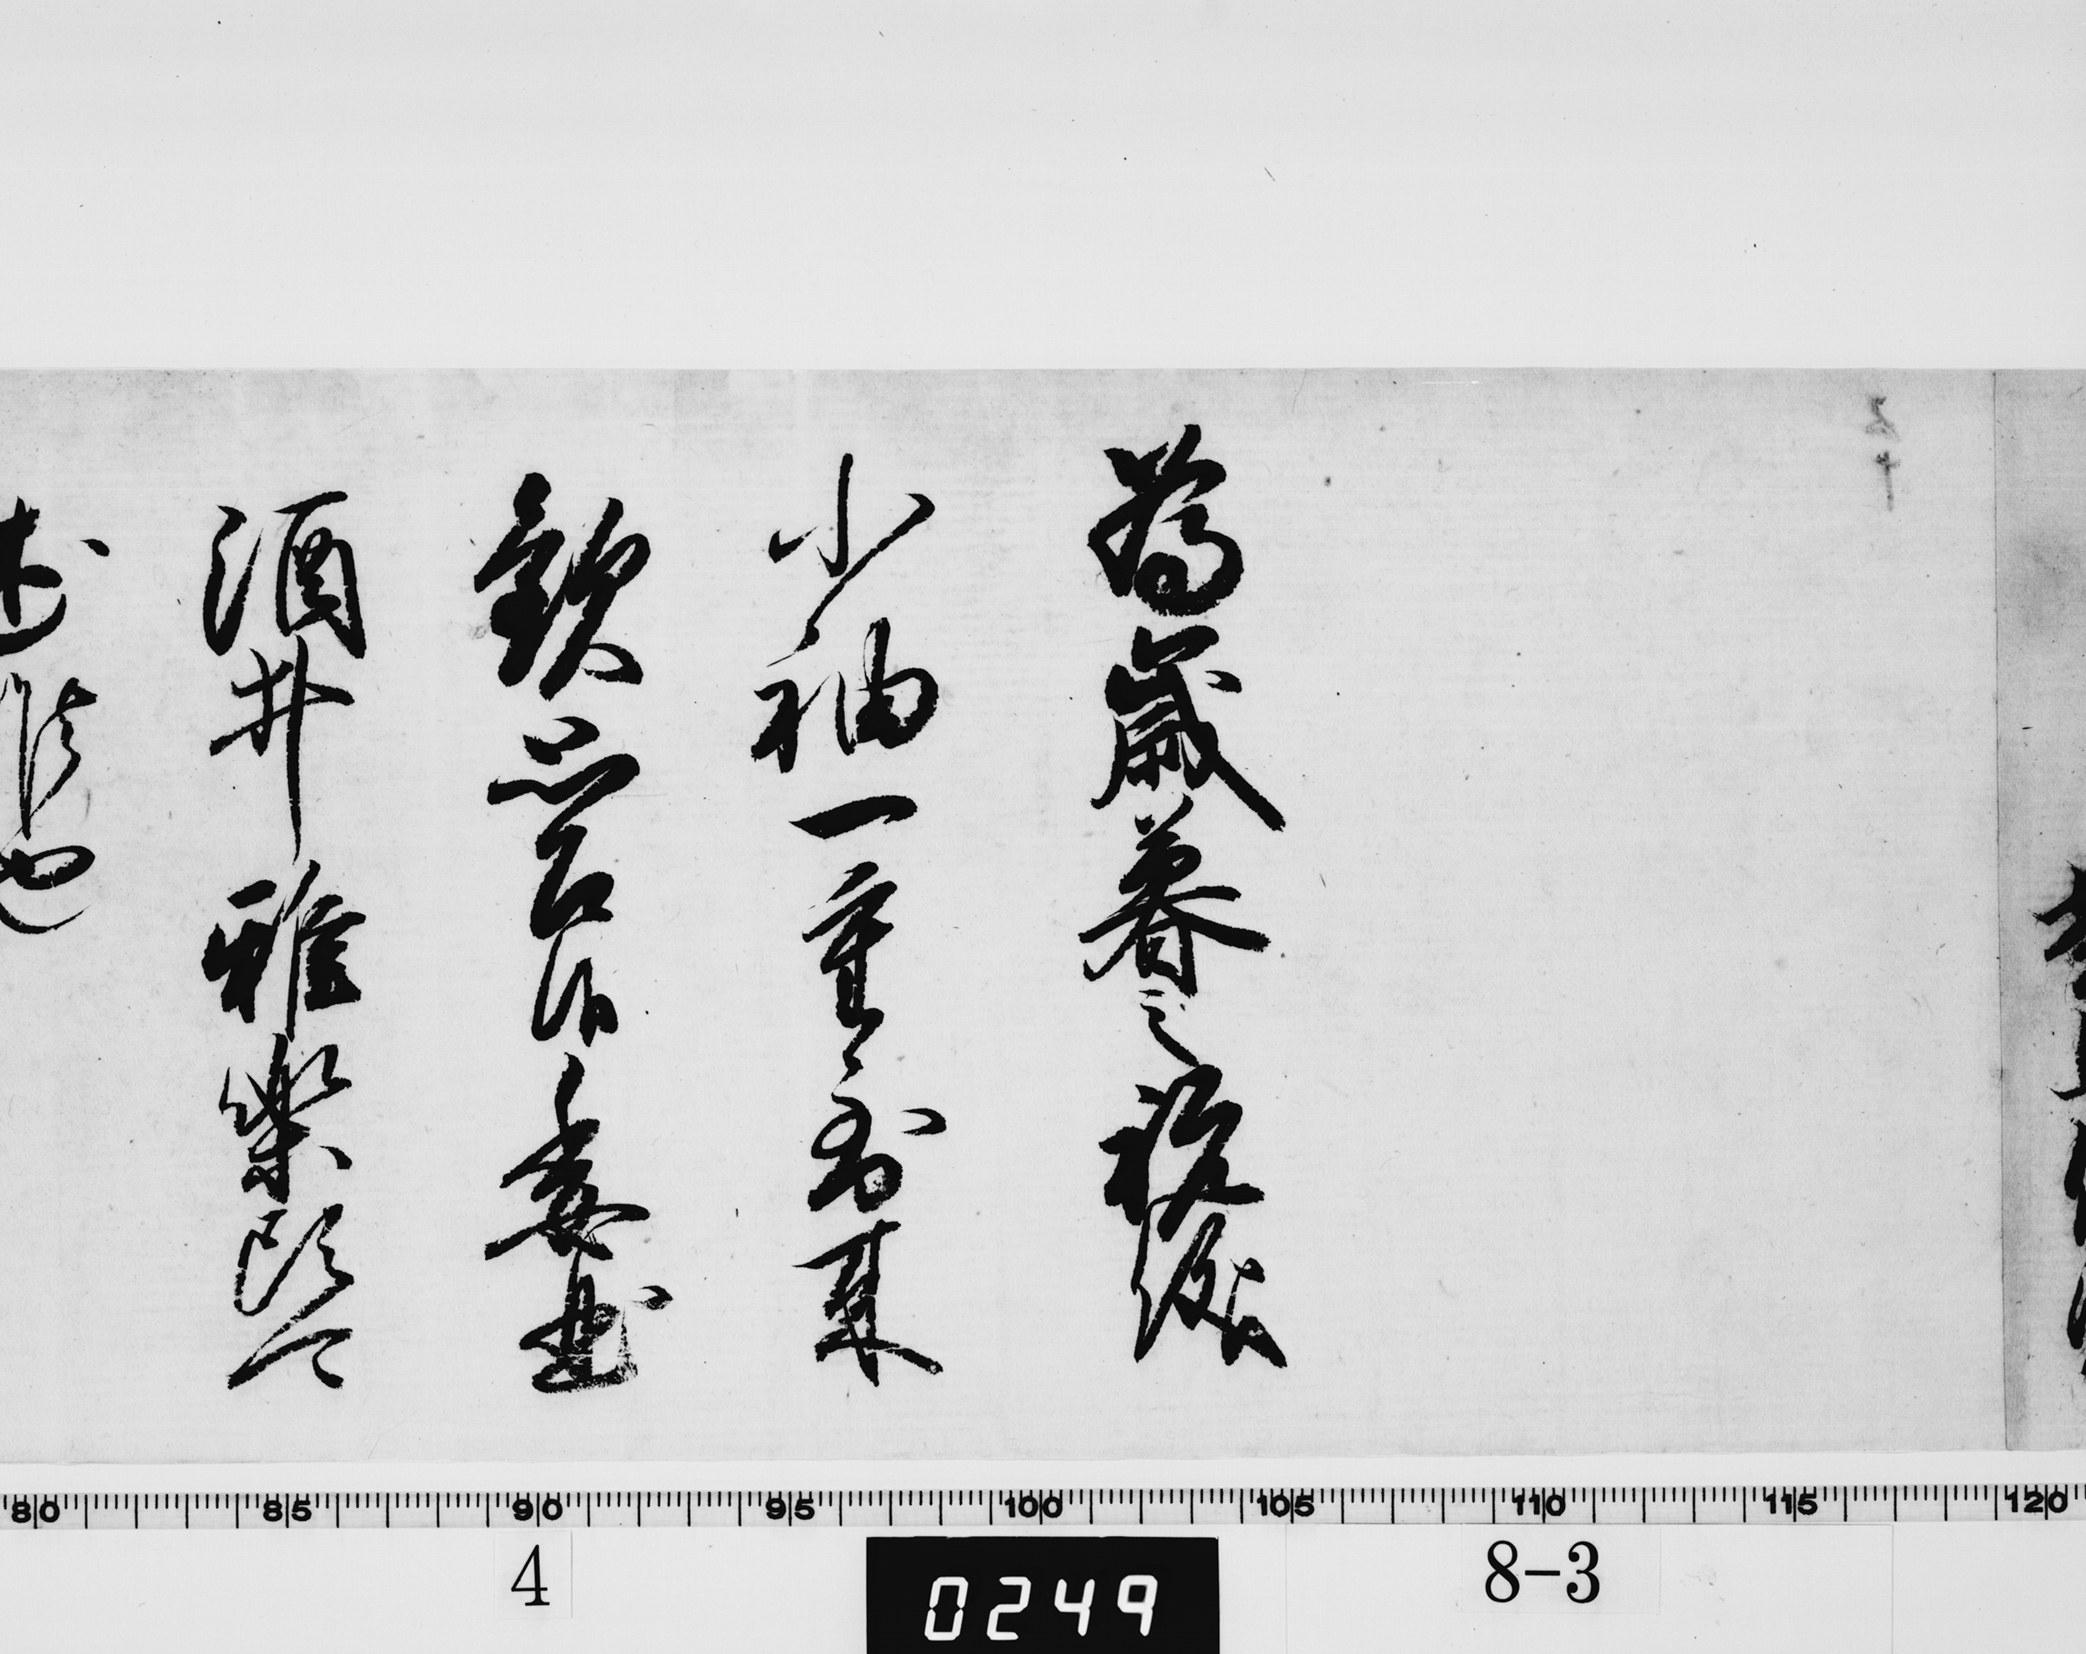 為歳暮之祝儀
小袖一重到来
歓思召候委曲
酒井雅楽頭可
述候也
80 85 90 95 100 105 110 115 120
4
0249
8-3